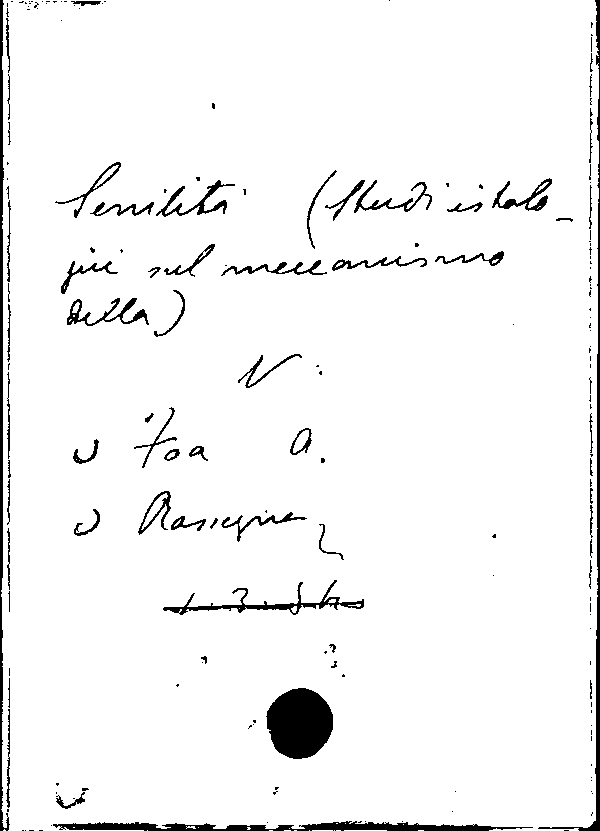 Senilità (Studi istolo-
gici sul meccanismo
della)
V:
Foa A.
Rassegna